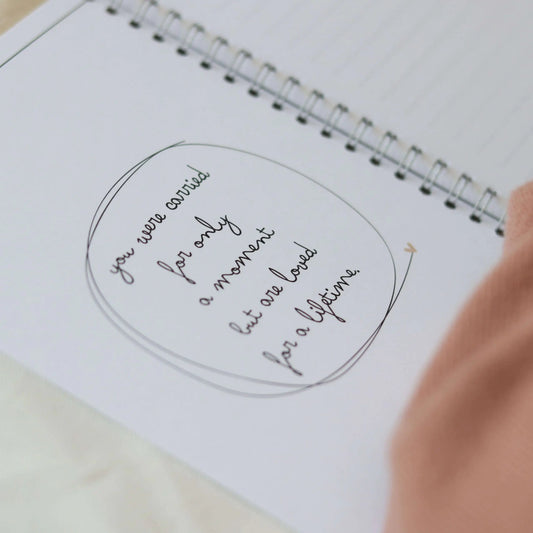 you were carried
for only
a moment
but are loved
for a lifetime.